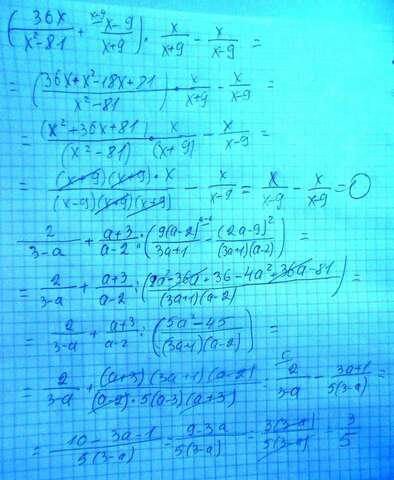 (36x/(x²-81) + ˣ⁻⁹ (x-9)/(x+9)) · x/(x+9) - x/(x-9) =
= ((36x+x²-18x+81)/(x²-81)) · x/(x+9) - x/(x-9) =
= (x²+36x+81)/(x²-81) · x/(x+9) - x/(x-9) =
= ((x+9)(x+9)·x)/((x-9)(x+9)(x+9)) - x/(x-9) = x/(x-9) - x/(x-9) = 0
2/(3-a) + (a+3)/(a-2) : (9(a-2)²/(3a+1) - (2a-9)²/((3a+1)(a-2))) =
= 2/(3-a) + (a+3)/(a-2) : ((9a²-36a+36-4a²+36a-81)/((3a+1)(a-2))) =
= 2/(3-a) + (a+3)/(a-2) : ((5a²-45)/((3a+1)(a-2))) =
= 2/(3-a) + ((a+3)(3a+1)(a-2))/((a-2)·5(a-3)(a+3)) = 2/(3-a) - (3a+1)/(5(3-a)) =
= (10-3a-1)/(5(3-a)) = (9-3a)/(5(3-a)) = 3(3-a)/(5(3-a)) = 3/5